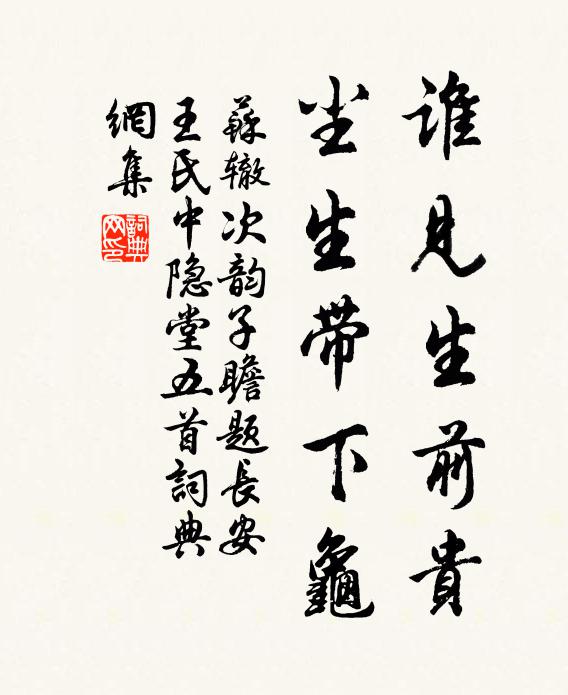 誰見生前貴
尘生带下龜
蘇辙次韵子瞻題長安
王氏中隐堂五首詞典
網集
詞典
网印